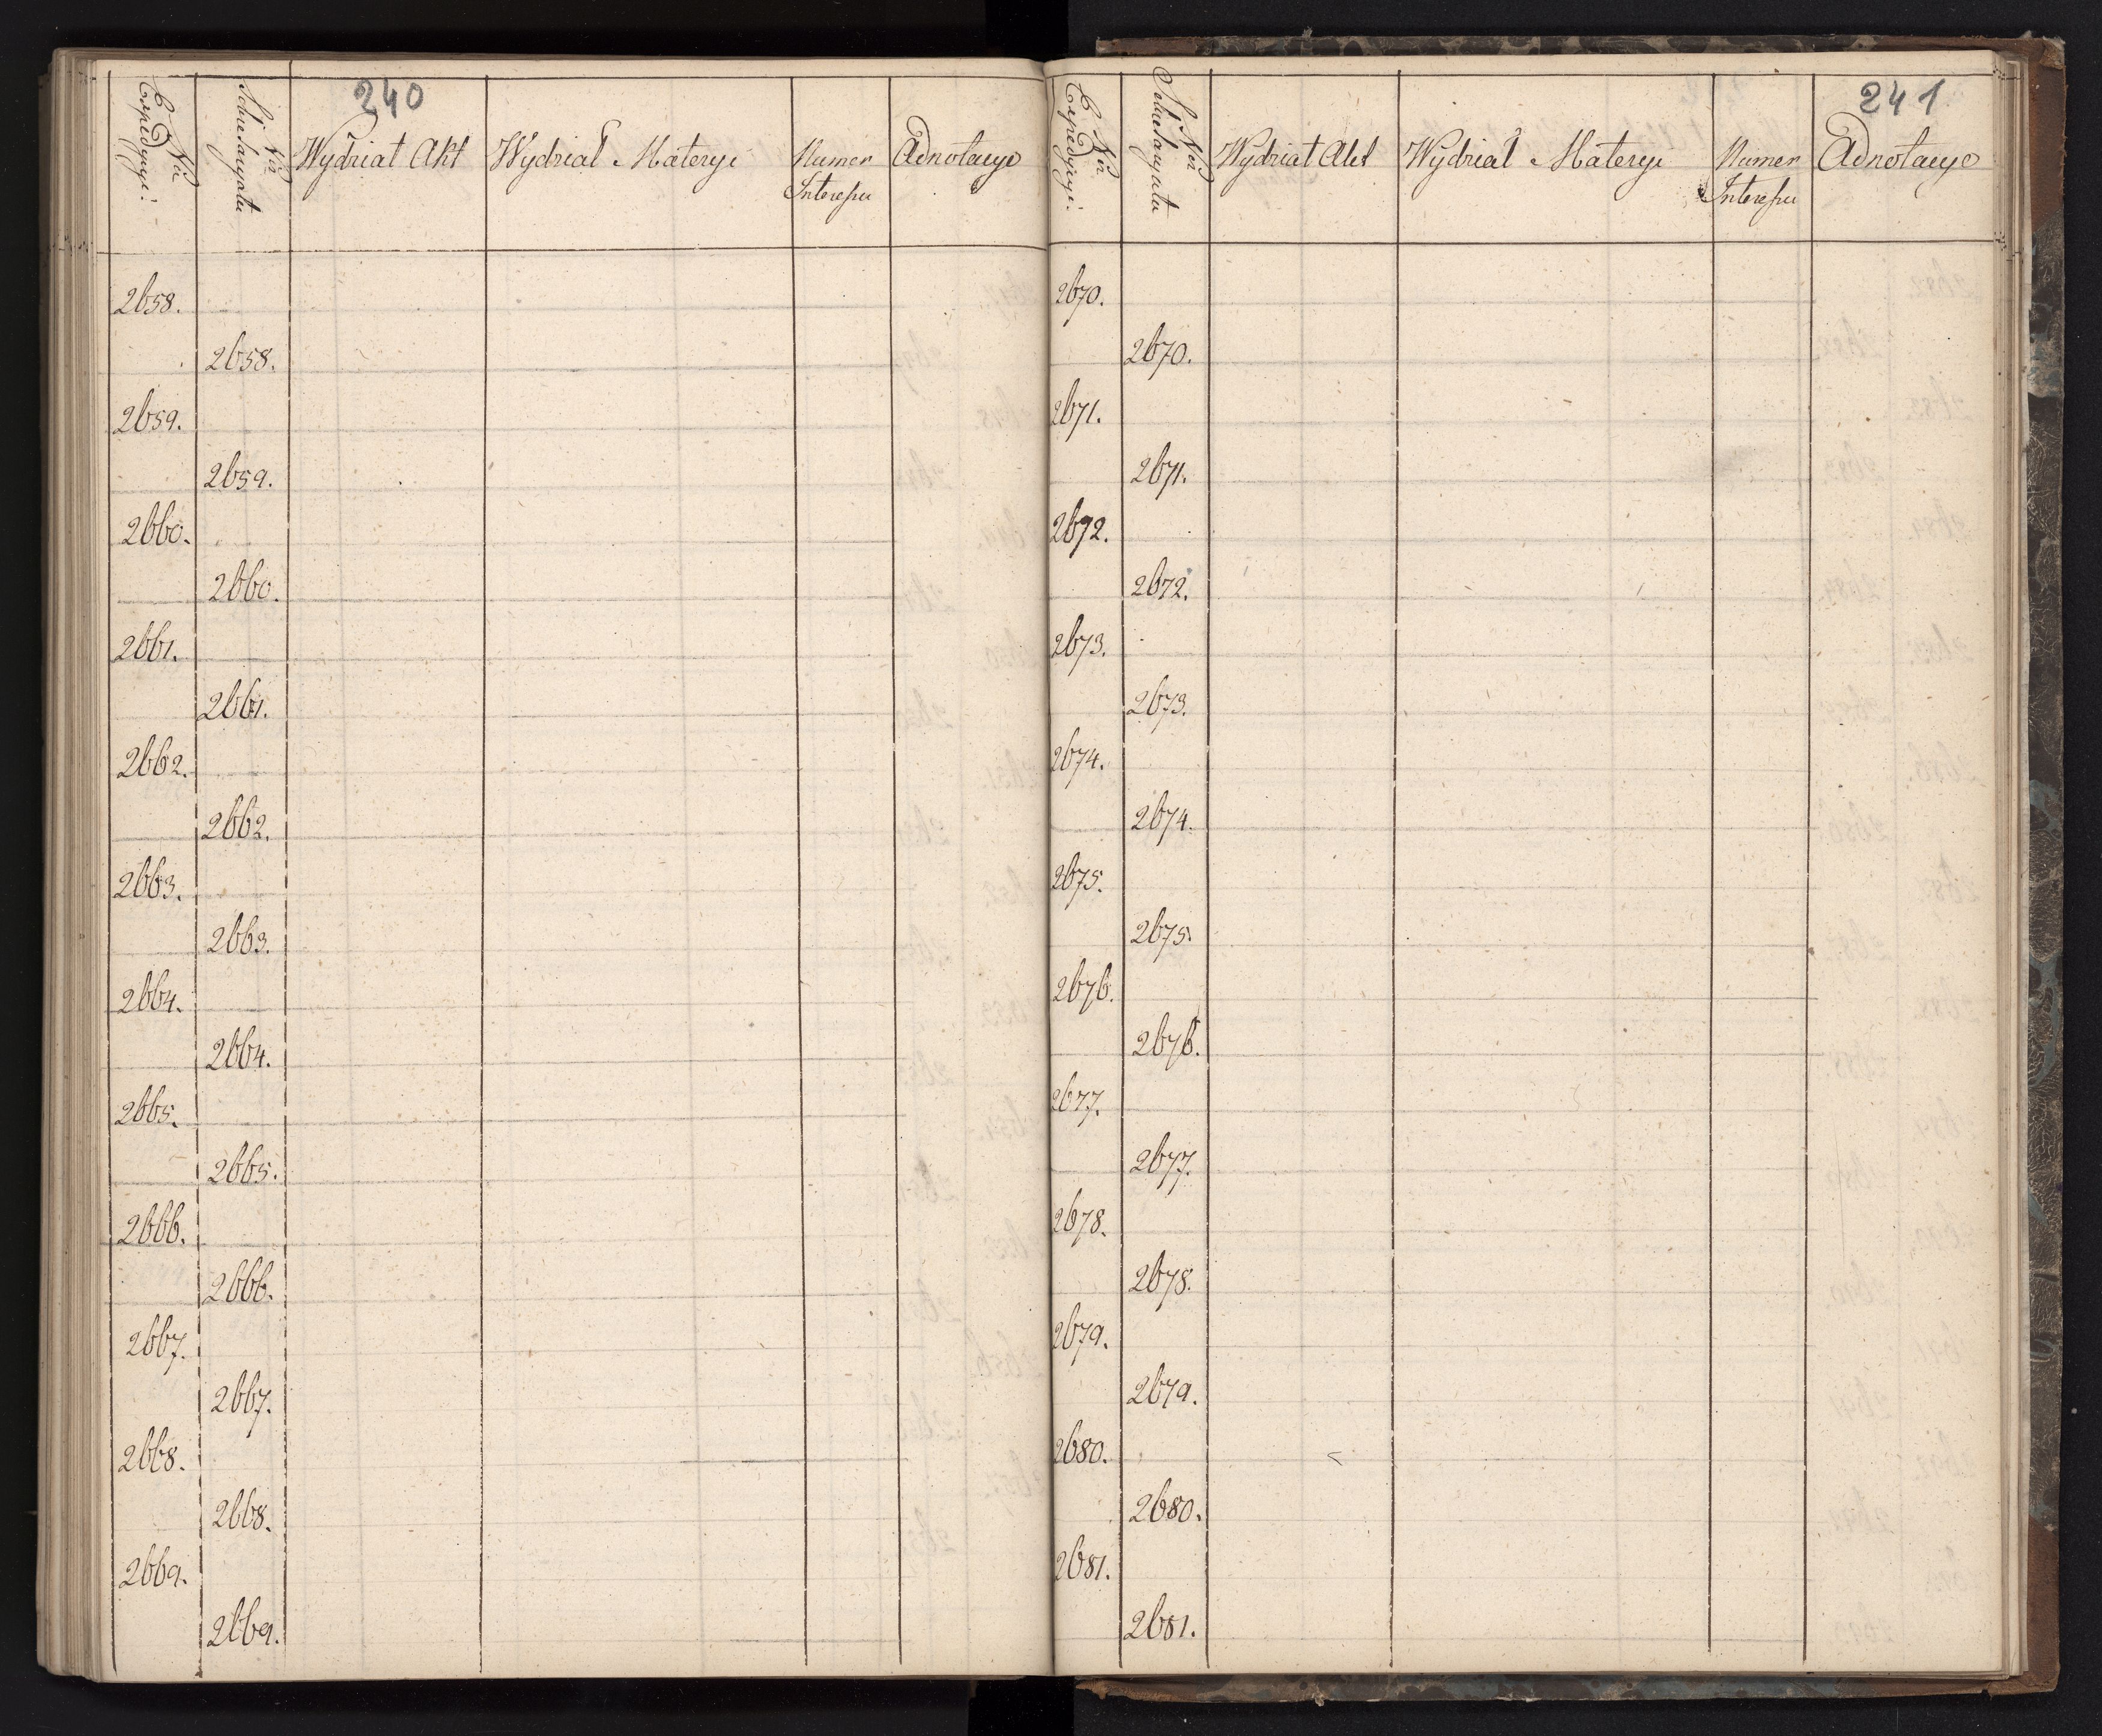 240
Nro Expedycyi:
Nro Scholarzatu
Wydział Akt
Wydział Materyi
Numer Interessu
Adnotacye
2658.
2658.
2659.
2659.
2660.
2660.
2661.
2661.
2662.
2662.
2663.
2663.
2664.
2664.
2665.
2665.
2666.
2666.
2667.
2667.
2668.
2668.
2669.
2669.
241
Wydział Akt
Wydział Materyi
Numer Interessu
Adnotacye
2670.
2670.
2671.
2671.
2672.
2672.
2673.
2673.
2674.
2674.
2675.
2675.
2676.
2676.
2677.
2677.
2678.
2678.
2679.
2679.
2680.
2680.
2681.
2681.